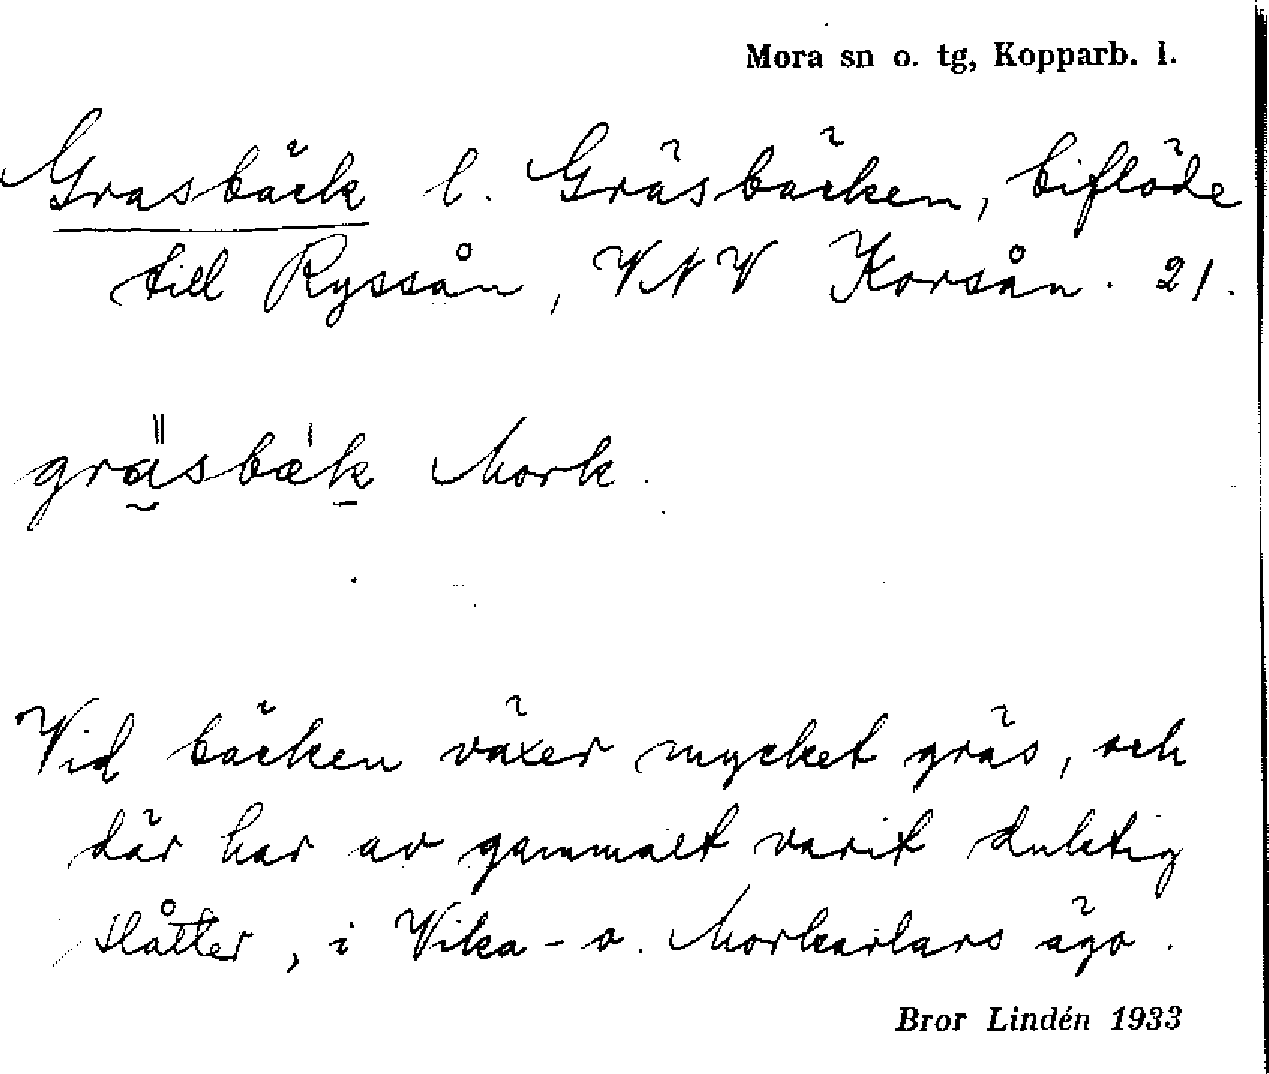 Mora sn o. tg, Kopparb. l.
Grasbäck l. Gräsbäcken, biflöde
till Ryssån, VNV Korsån. 21.
gräsbæk Mork.
Vid bäcken växer mycket gräs, och
där har av gammalt varit duktig
slåtter, i Vika- o. Morkarlars ägo.
Bror Lindén 1933